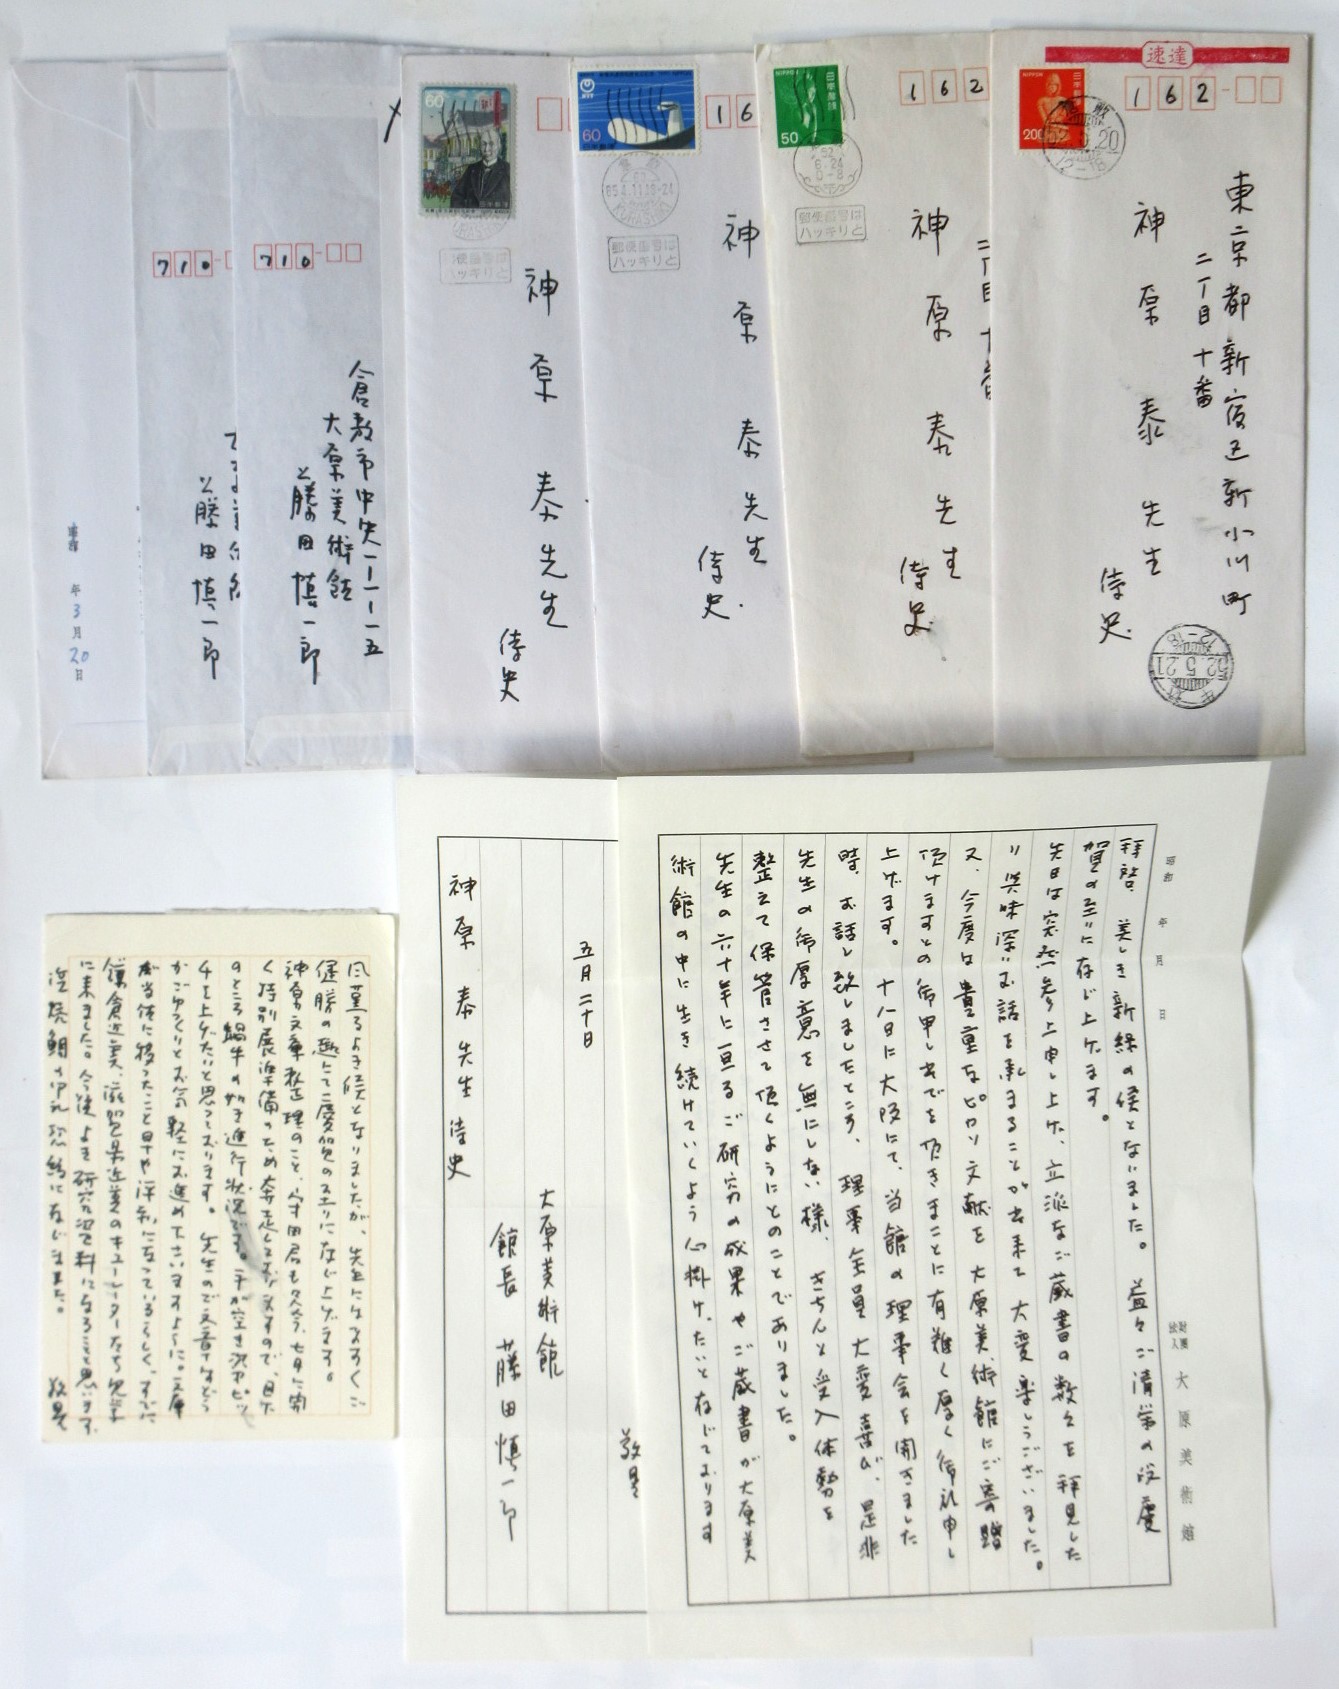 速達
NIPPON
日本郵便
200
162
東京都新宿区新小川町
二丁目十番
神原泰先生
侍史
52.5.21
12-18
NIPPON
日本郵便
50
162
二丁目十番
神原泰先生
侍史
郵便番号は
ハッキリと
60
日本郵便
16
神原泰先生
侍史
郵便番号は
ハッキリと
60
日本郵便
神原泰先生
侍史
便番号は
ハッキリと
710
倉敷市中央一ー一ー一五
大原美術館
藤田慎一郎
710
藤田慎一郎
昭和 年3月20日
昭和 年 月 日
財団法人 大原美術館
拝啓、美しき新緑の候となりました。益々ご清栄の段慶
賀の至りに存じ上げます。
先日は突然参上申し上げ、立派なご蔵書の数々を拝見した
り興味深いお話を承まることが出来て大変楽しうございました。
又、今度は貴重なピカソ文献を大原美術館にご寄贈
頂けますとの御申し出でを頂きまことに有難く厚く御礼申し
上げます。十八日に大阪にて、当館の理事会を開きました
時、お話し致しましたところ、理事全員大変喜び、是非
先生の御厚意を無にしない様、きちんと受入体勢を
整えて保管させて頂くようにとのことでありました。
先生の六十年に亘るご研究の成果やご蔵書が大原美
術館の中に生き続けていくよう心掛けたいと存じております
敬具
五月二十日
大原美術館
館長 藤田慎一郎
神原泰先生 侍史
風薫るよき候となりましたが、先生にはますますご
健勝の趣にて慶賀の至りに存じ上げます。
神原文庫整理のこと、守田君も久々、七月に開
く特別展準備のため奔走しておりますので、目下
のところ蝸牛の如き進行状況です。手が空き次第ピッ
チを上げたいと思っております。先生ので文章などう
かごゆっくりとお気軽にお進め下さいますように。文庫
が当館に移ったこと早や評判になっているらしく、すでに
鎌倉近美、滋賀県近美のキューレーターたちが見学
に来ました。今後よき研究資料になることと思います。
浜焼鯛の御礼恐縮に存じました。 敬具